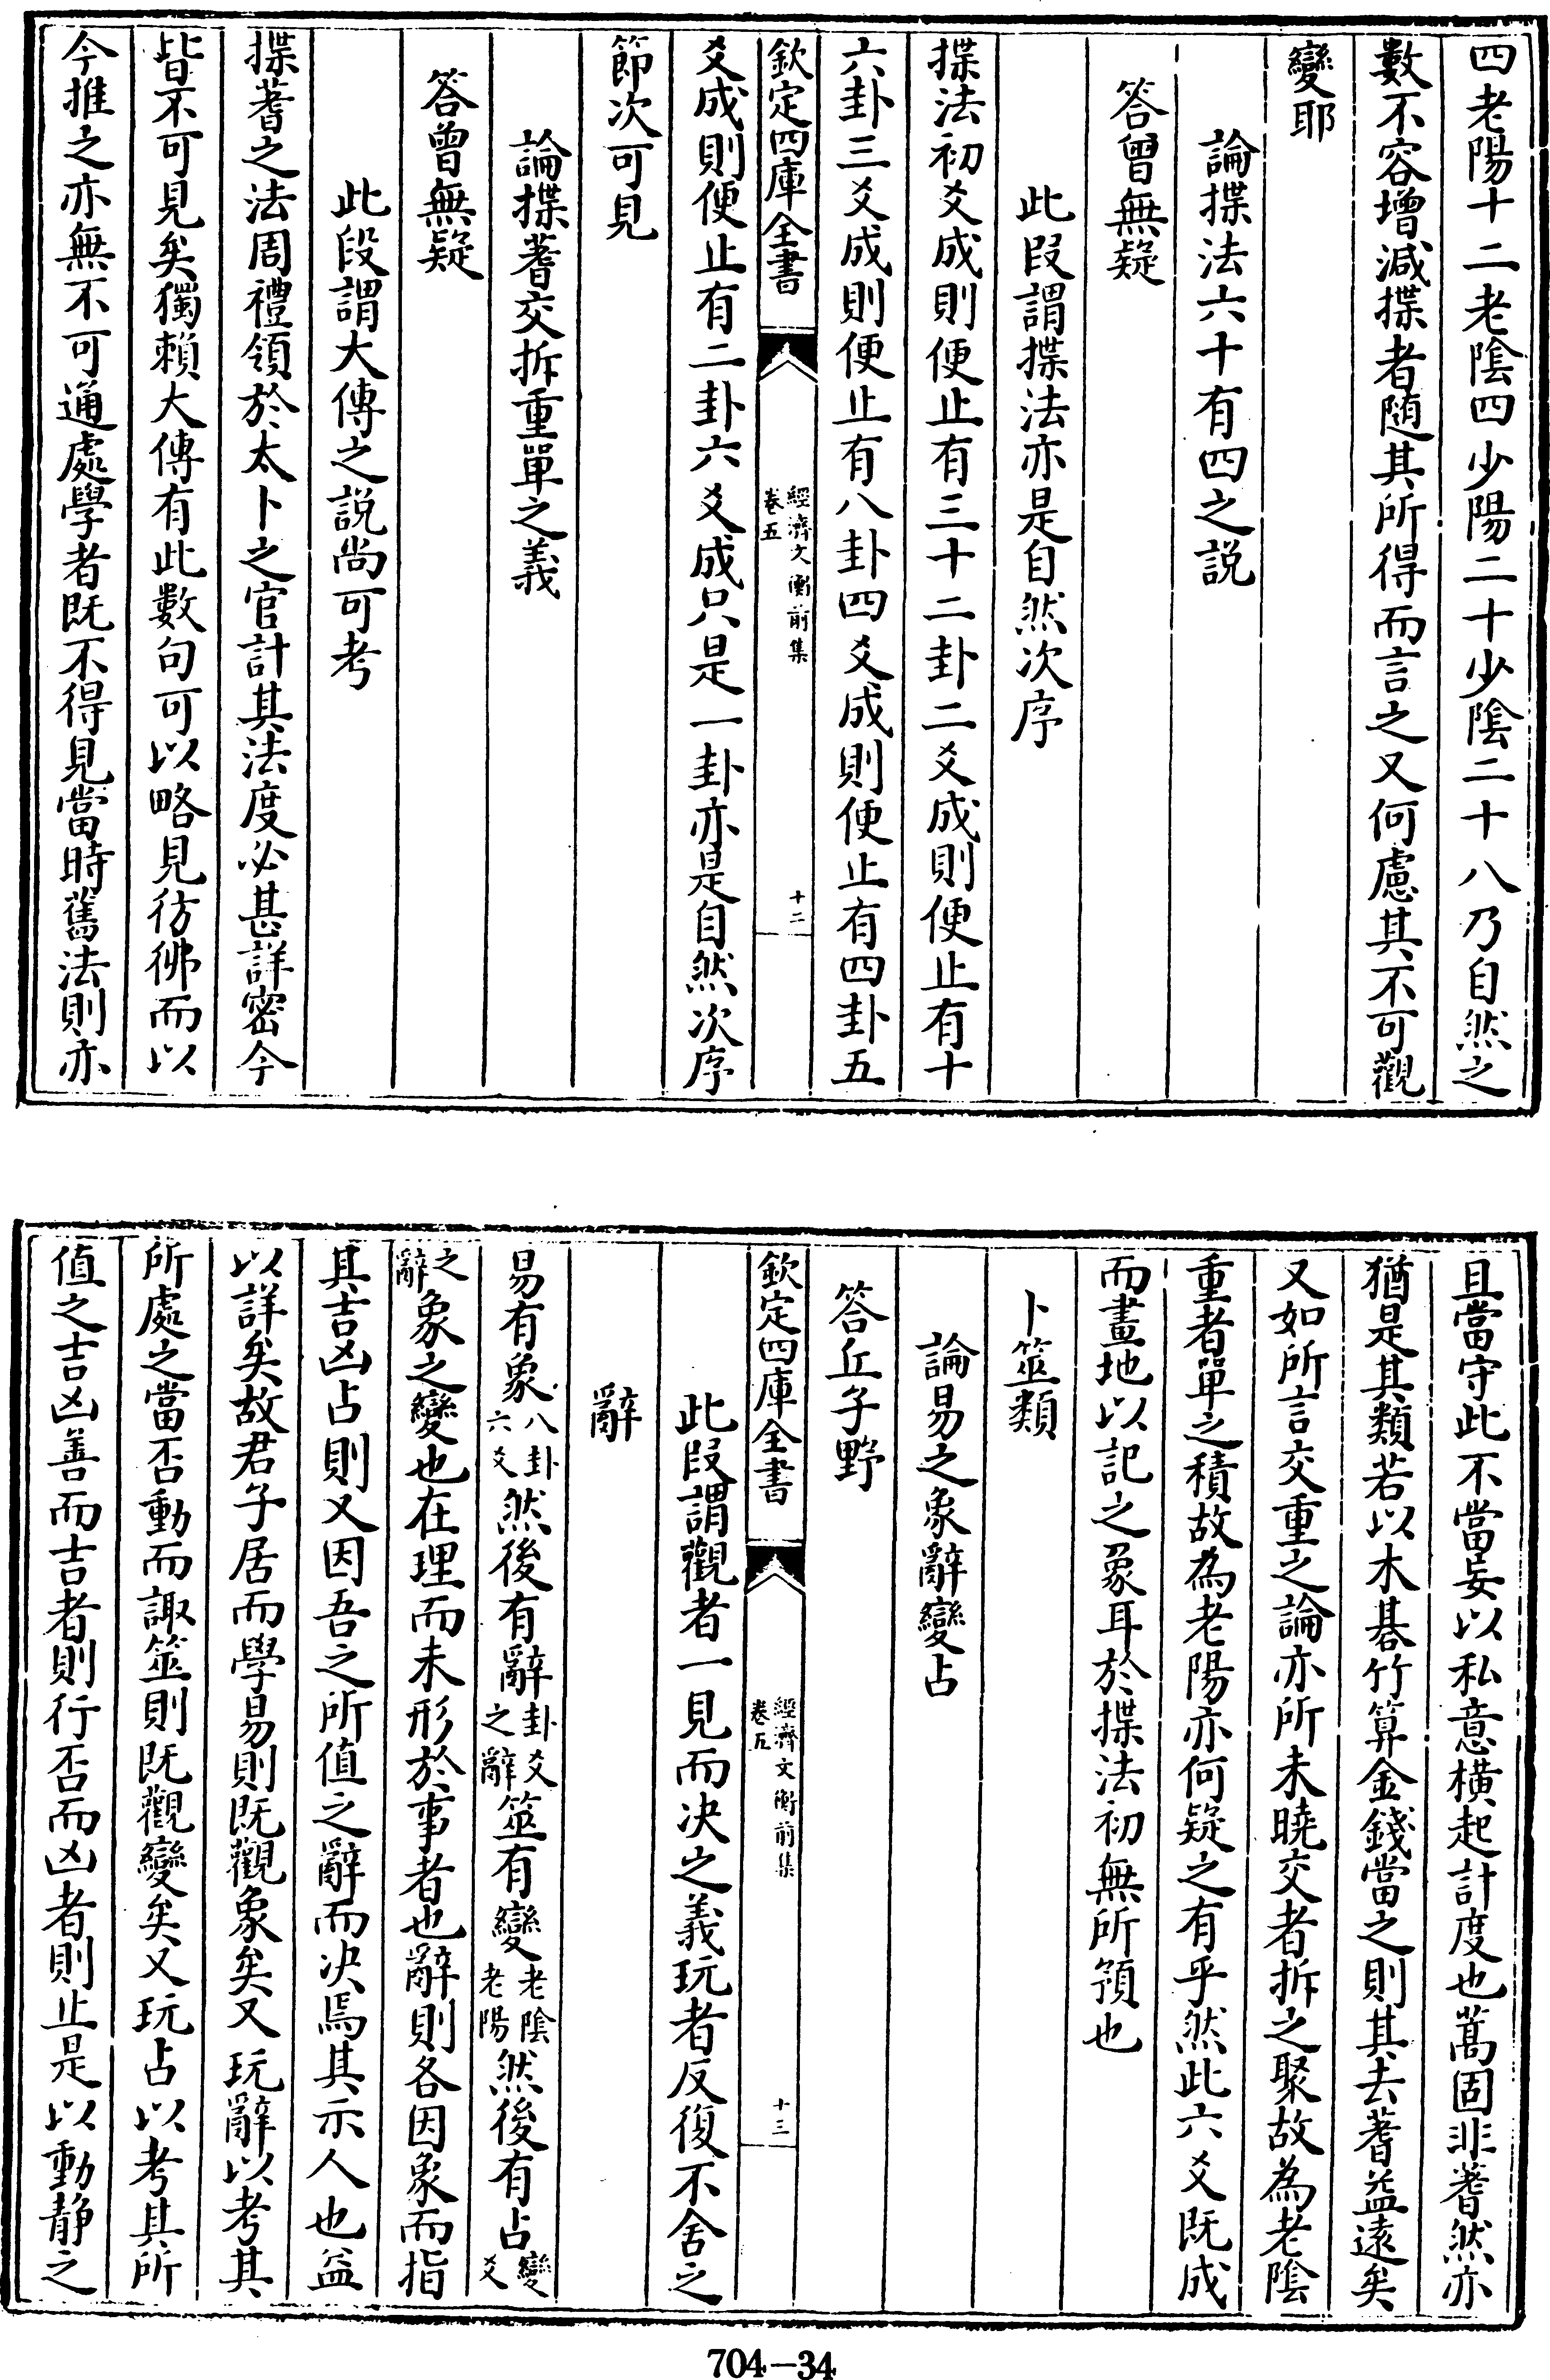 四老陽十二老陰四少陽二十少陰二十八乃自然之
數不容增減揲者随其所得而言之又何慮其不可觀
變耶
論揲法六十有四之説
答曾無疑
此段謂揲法亦是自然次序
揲法初爻成則便止有三十二卦二爻成則便止有十
六卦三爻成則便止有八卦四爻成則便止有四卦五
欽定四庫全書
經濟文衡前集
卷五
十二
爻成則便止有二卦六爻成只是一卦亦是自然次序
節次可見
論揲蓍交拆重單之義
答曾無疑
此段謂大傳之説尚可考
揲蓍之法周禮領於太卜之官計其法度必甚詳密今
皆不可見矣獨賴大傳有此數句可以略見彷彿而以
今推之亦無不可通處學者既不得見當時舊法則亦
且當守此不當妄以私意橫起計度也蒿固非蓍然亦
猶是其類若以木碁竹算金錢當之則其去蓍益遠矣
又如所言交重之論亦所未曉交者拆之聚故為老陰
重者單之積故為老陽亦何疑之有乎然此六爻既成
而畫地以記之象耳於揲法初無所預也
卜筮類
論易之象辭變占
答丘子野
欽定四庫全書
經濟文衡前集
卷五
十三
此段謂觀者一見而决之義玩者反復不舍之
辭
易有象八卦六爻然後有辭卦爻之辭筮有變老陰老陽然後有占變爻
之辭象之變也在理而未形於事者也辭則各因象而指
其吉凶占則又因吾之所值之辭而决焉其示人也益
以詳矣故君子居而學易則既觀象矣又玩辭以考其
所處之當否動而諏筮則既觀變矣又玩占以考其所
值之吉凶善而吉者則行否而凶者則止是以動静之
704-34